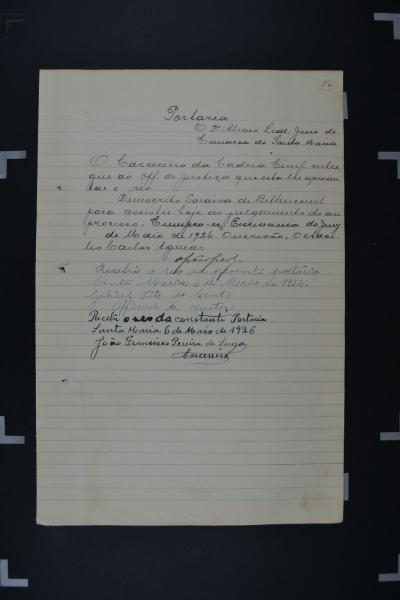 50
Portaria
O Dr Alvaro Leal, Juiz de
Comarca de Santa Maria
O Carcereiro da Cadeia Civil entre
que ao Off. de Justiça que esta lhe apresen
tar o réo
Democrito Saraiva de Bettencourt
para assistir hoje ao julgamento do seu
processo. Cumpra-se. Escrivania do Jury
de Maio de 1926 Escrivão,
Carlos
Recebi o reo da presente portaria
Santa Maria 6 de Maio de 1926.
Gabriel
O Official de Justiça
Recibi o reo da constanti Portaria
Santa Maria 6 de Maio de 1926
João Francisco Pereira de Souza
Carcereiro